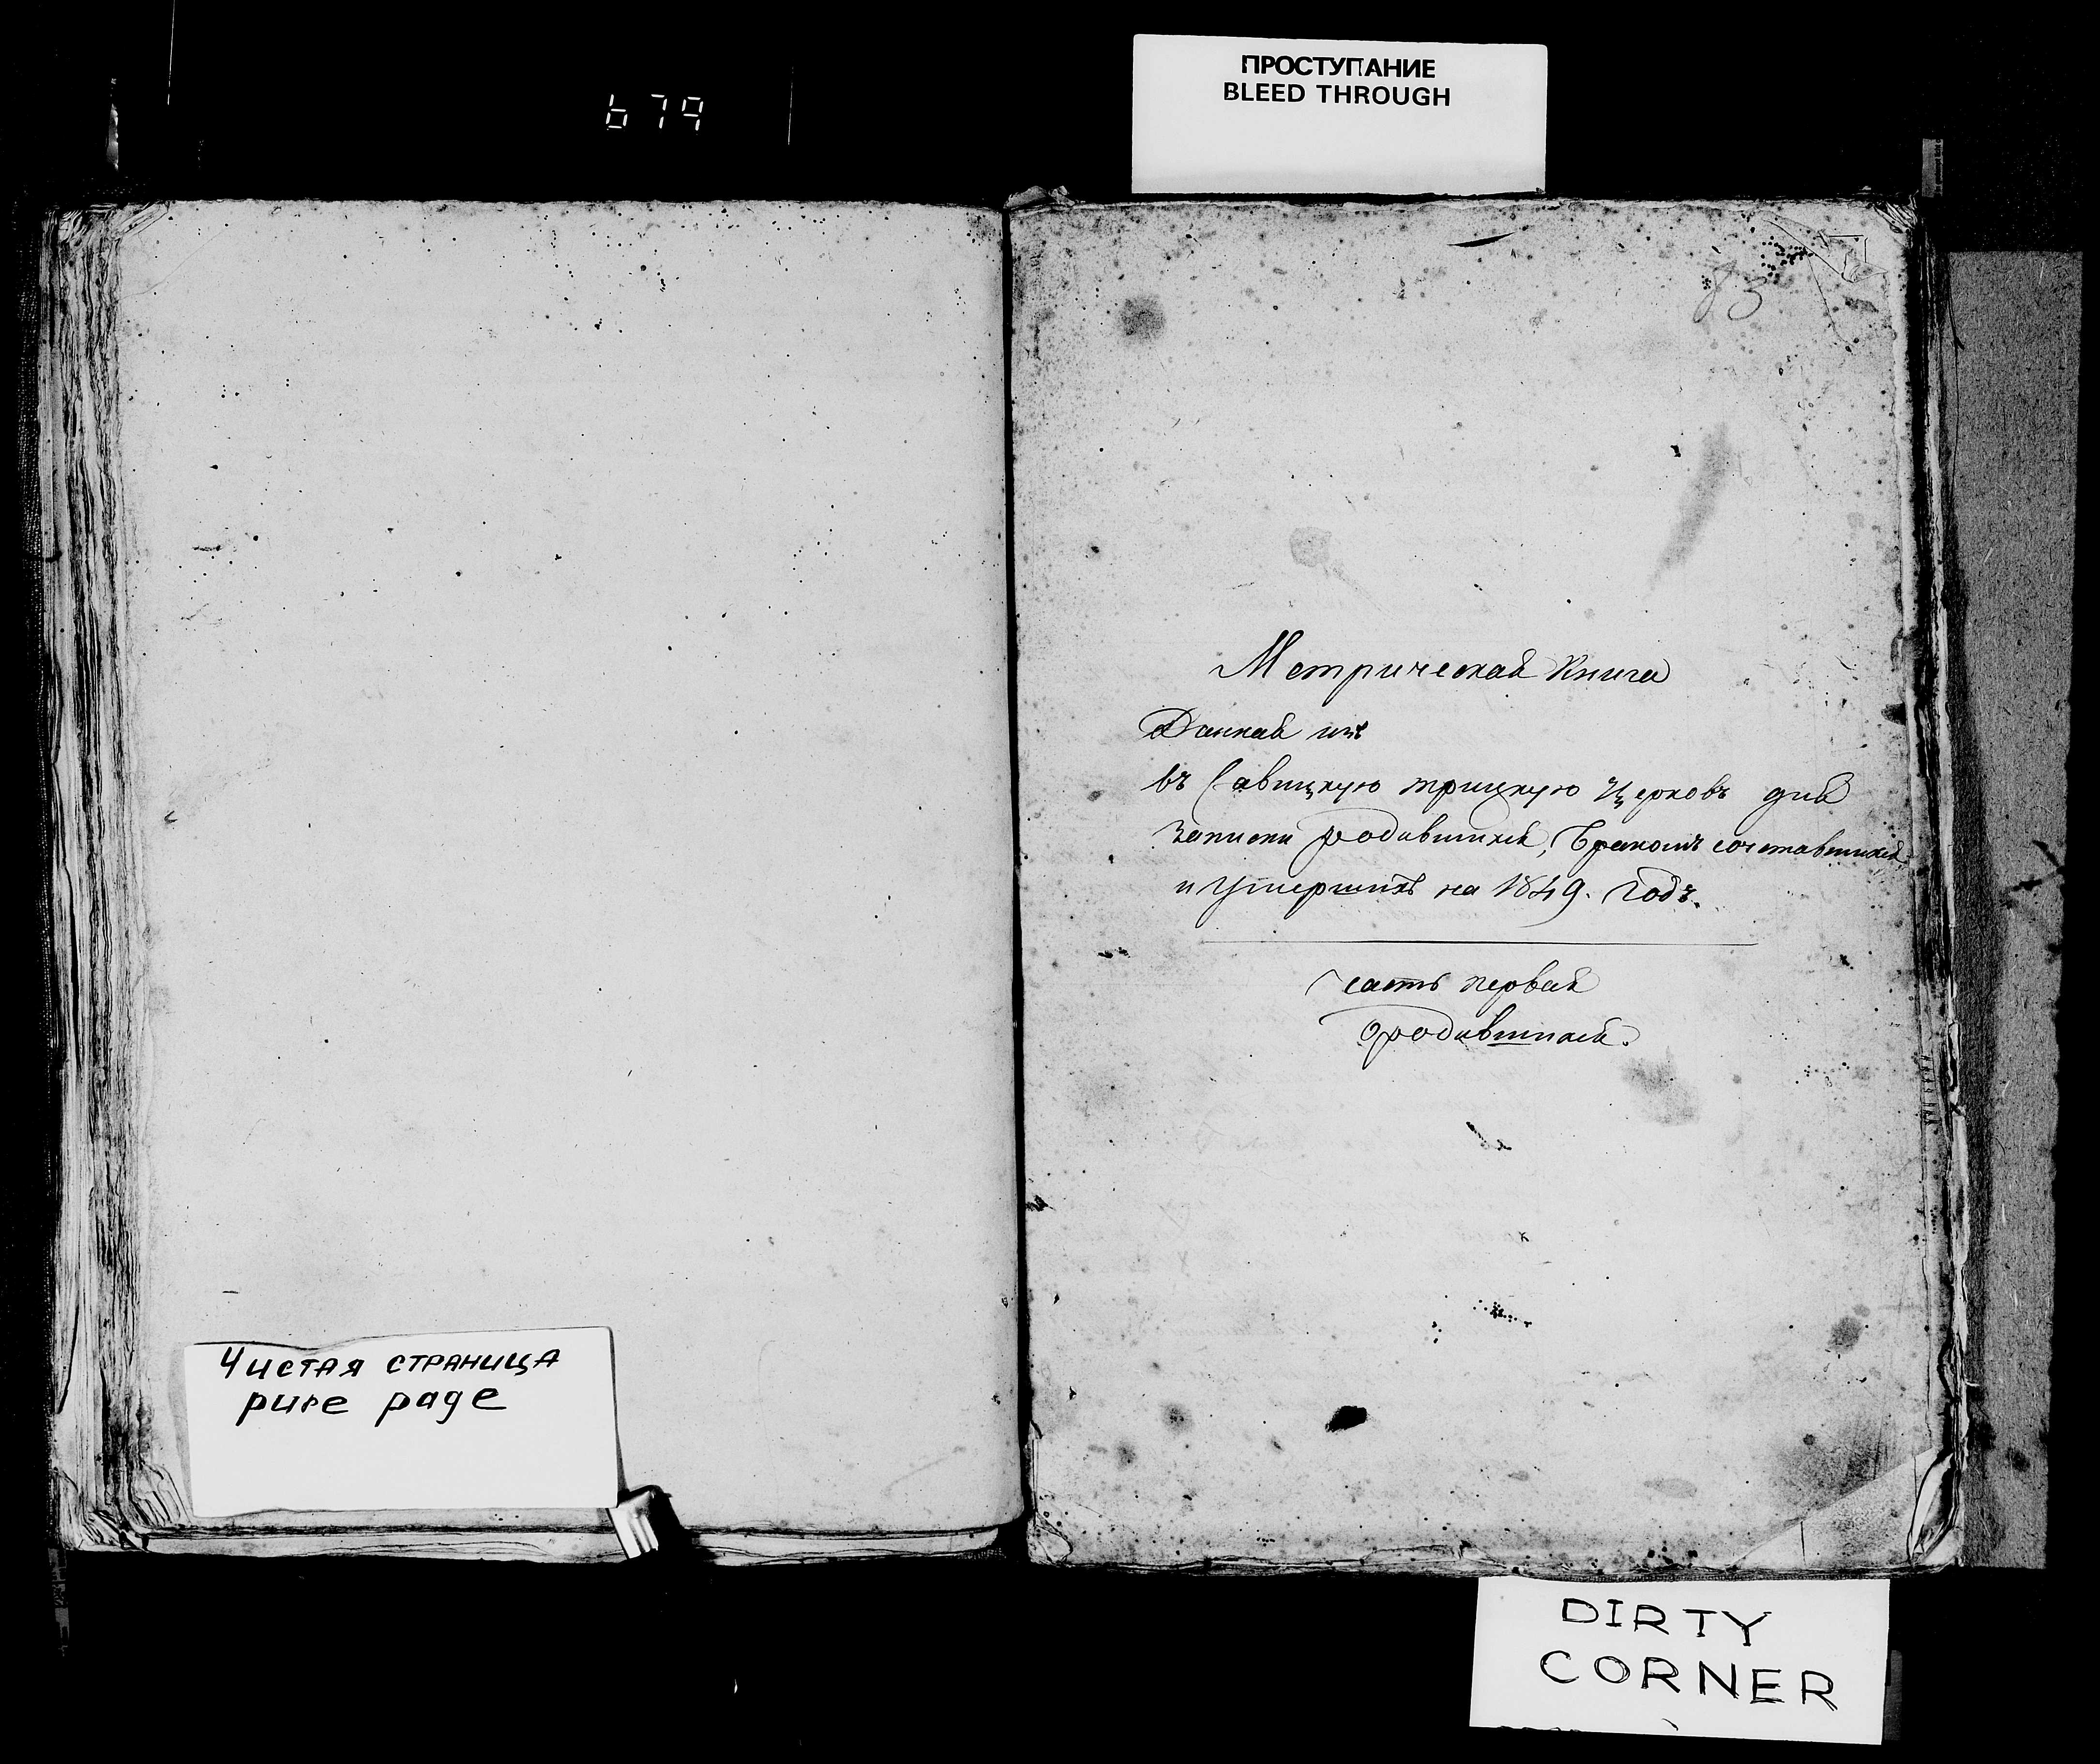 679
ПРОСТУПАНИЕ
BLEED THROUGH
83
Метрическая Книга
Данная изъ
въ Савицкую трицкую Церковь для
Записки родившихся, Бракомъ сочетавшихся
и Умершихъ на 1849. Годъ.
Часть первая
О родившихся.
Чистая страница
pure page
DIRTY
CORNER